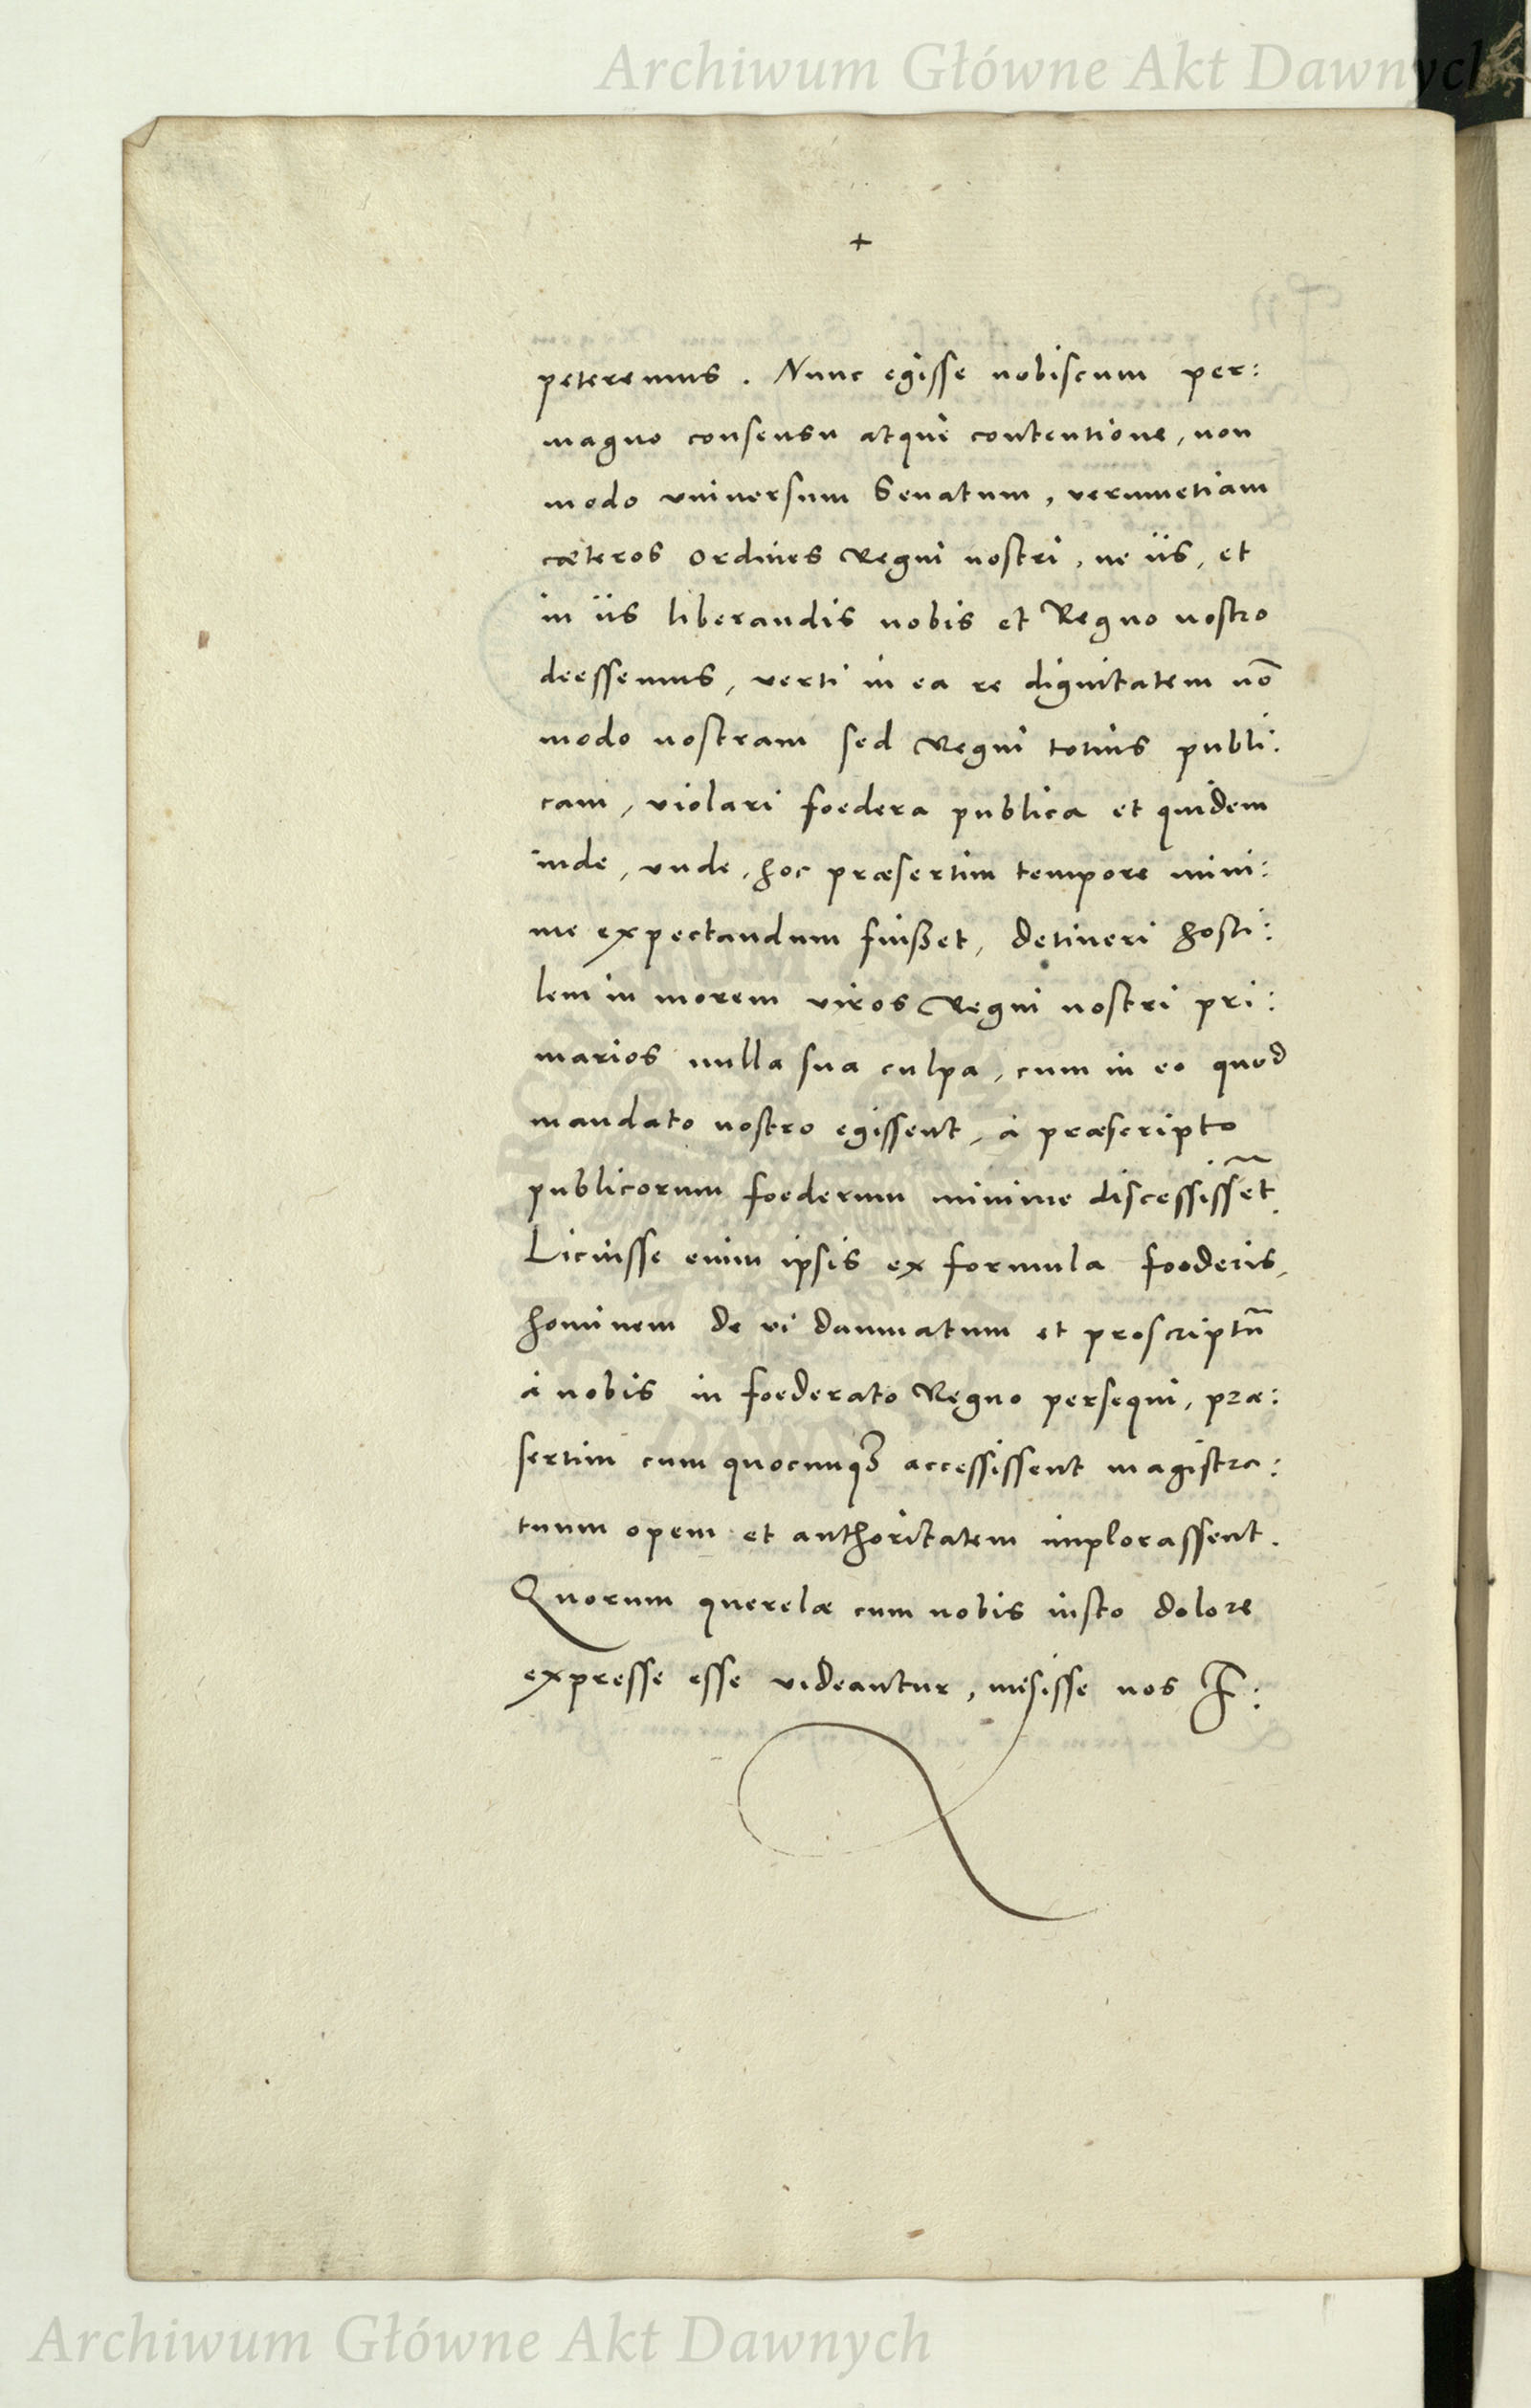 Archiwum Główne Akt Dawnych
+
peteremus. Nunc egisse nobiscum per:
magno consensu atque contentione, non
modo vniuersum Senatum, verumetiam
cæteros ordines Regni nostri, ne iis, et
in iis liberandis nobis et Regno nostro
deessemus, verti in ea re dignitatem nõ
modo nostram sed Regni totius publi:
cam, violari foedera publica et quidem
inde, vnde, hoc præsertim tempore mini:
me expectandum fuisset, detineri hosti:
lem in morem viros Regni nostri pri:
marios nulla sua culpa, cum in eo quod
mandato nostro egissent, à præscripto
publicorum foederum minime discessissẽt.
Licuisse enim ipsis ex formula foederis,
hominem de vi damnatum et proscriptũ
à nobis in foederato Regno persequi, præ:
sertim cum quocunqȝ accessissent magistra:
tuum opem et authoritatem implorassent.
Quorum querelæ cum nobis iusto dolore
expresse esse videantur, misisse nos F:
Archiwum Główne Akt Dawnych